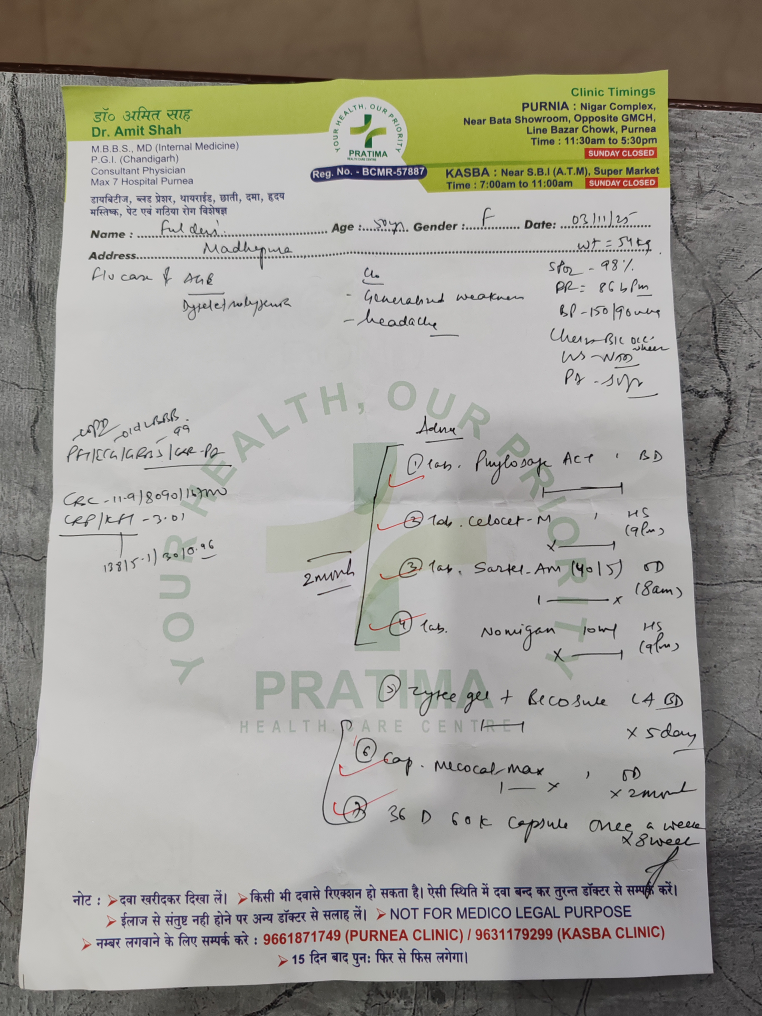 डॉ० अमित साह
Dr. Amit Shah
M.B.B.S., MD (Internal Medicine)
P.G.I. (Chandigarh)
Consultant Physician
Max 7 Hospital Purnea
डायबिटीज, ब्लड प्रेशर, थायराईड, छाती, दमा, हृदय
मस्तिष्क, पेट एवं गठिया रोग विशेषज्ञ
YOUR HEALTH, OUR PRIORITY
PRATIMA
HEALTH CARE CENTRE
Reg. No. - BCMR-57887
Clinic Timings
PURNIA : Nigar Complex,
Near Bata Showroom, Opposite GMCH,
Line Bazar Chowk, Purnea
Time : 11:30am to 5:30pm
SUNDAY CLOSED
KASBA : Near S.B.I (A.T.M), Super Market
Time : 7:00am to 11:00am SUNDAY CLOSED
Name : Ful devi Age : 50yr Gender : F Date: 03/11/25
Address Madhepura wt = 54kg
F/u case of AGE
c/o
SPO2 - 98%
- Generalized weakness
PR = 86 bpm
- headache
BP - 150/90
COPD old LBBB 99
PFT/ECG/GRBS/CXR-PA
CBC - 11.9/8090/
CRP/KFT - 3.01
138/5.1/30/0.96
Advice
2 month
① Tab. Phylosap Act BD
② Tab. Celocet-M HS (9pm)
x
③ Tab. Sartel-Am (40/5) OD (8am)
1 x
④ Tab. Nomigan 10mg HS (9pm)
x
⑤ Zyree gel + Becosule BD
x 5 day
⑥ Cap. Mecocal max OD
1 x x 2 month
⑦ 36 D 60K capsule once a week
x 8 week
YOUR HEALTH, OUR PRIORITY
PRATIMA
HEALTH CARE CENTRE
नोट : दवा खरीदकर दिखा लें। किसी भी दवासे रिएक्शन हो सकता है। ऐसी स्थिति में दवा बन्द कर तुरन्त डॉक्टर से सम्पर्क करें।
ईलाज से संतुष्ट नही होने पर अन्य डॉक्टर से सलाह लें। NOT FOR MEDICO LEGAL PURPOSE
नम्बर लगवाने के लिए सम्पर्क करे : 9661871749 (PURNEA CLINIC) / 9631179299 (KASBA CLINIC)
15 दिन बाद पुन: फिर से फिस लगेगा।